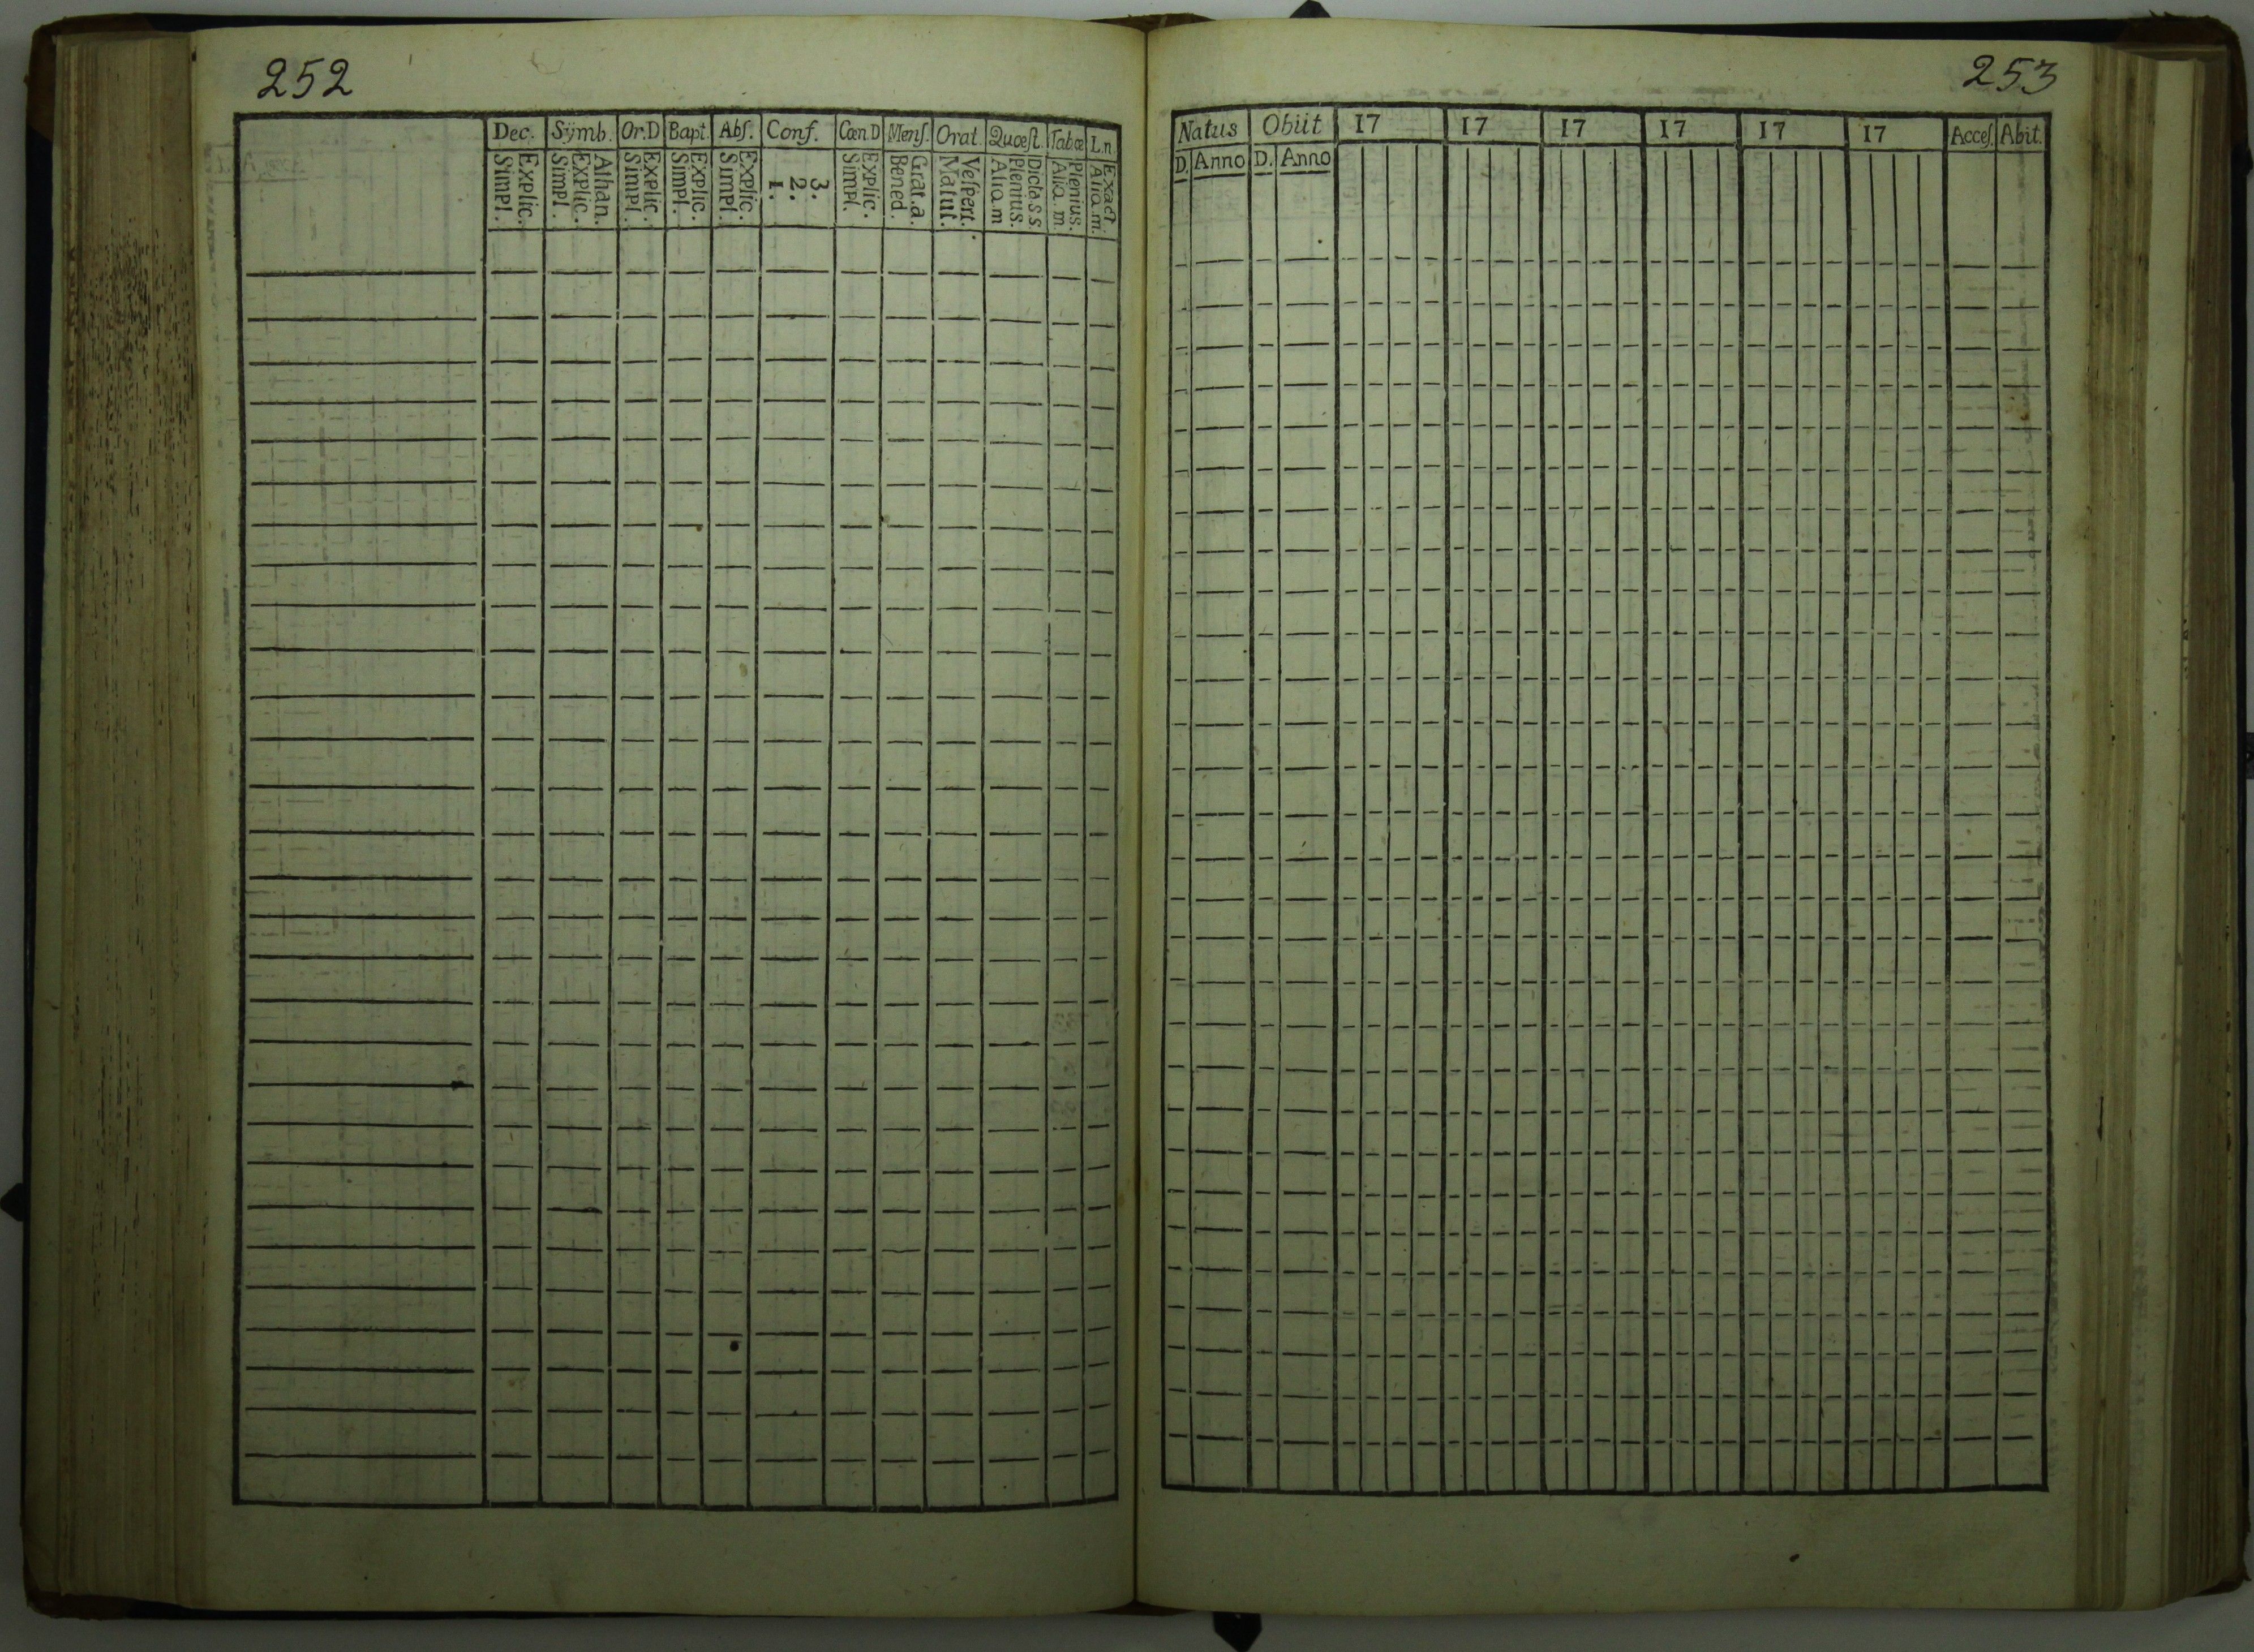 252
Dec. Sÿmb. Or.D Bapt. Abſ. Conf. CœnD Menſ. Orat. Quœſt. Tabœ L.n.
Explic. Simpl.
Athan. Explic. Simpl.
Explic. Simpl.
Explic. Simpl.
Explic. Simpl.
3. 2. 1.
Explic. Simpl.
Grat.a. Bened.
Veſpert. Matut.
Dicta s.s. Plenius. Alia.m
Plenius. Alia.m.
Exact. Alia.m.
253
Natus Obiit 17 17 17 17 17 17 Acceſ. Abit.
D. Anno D. Anno